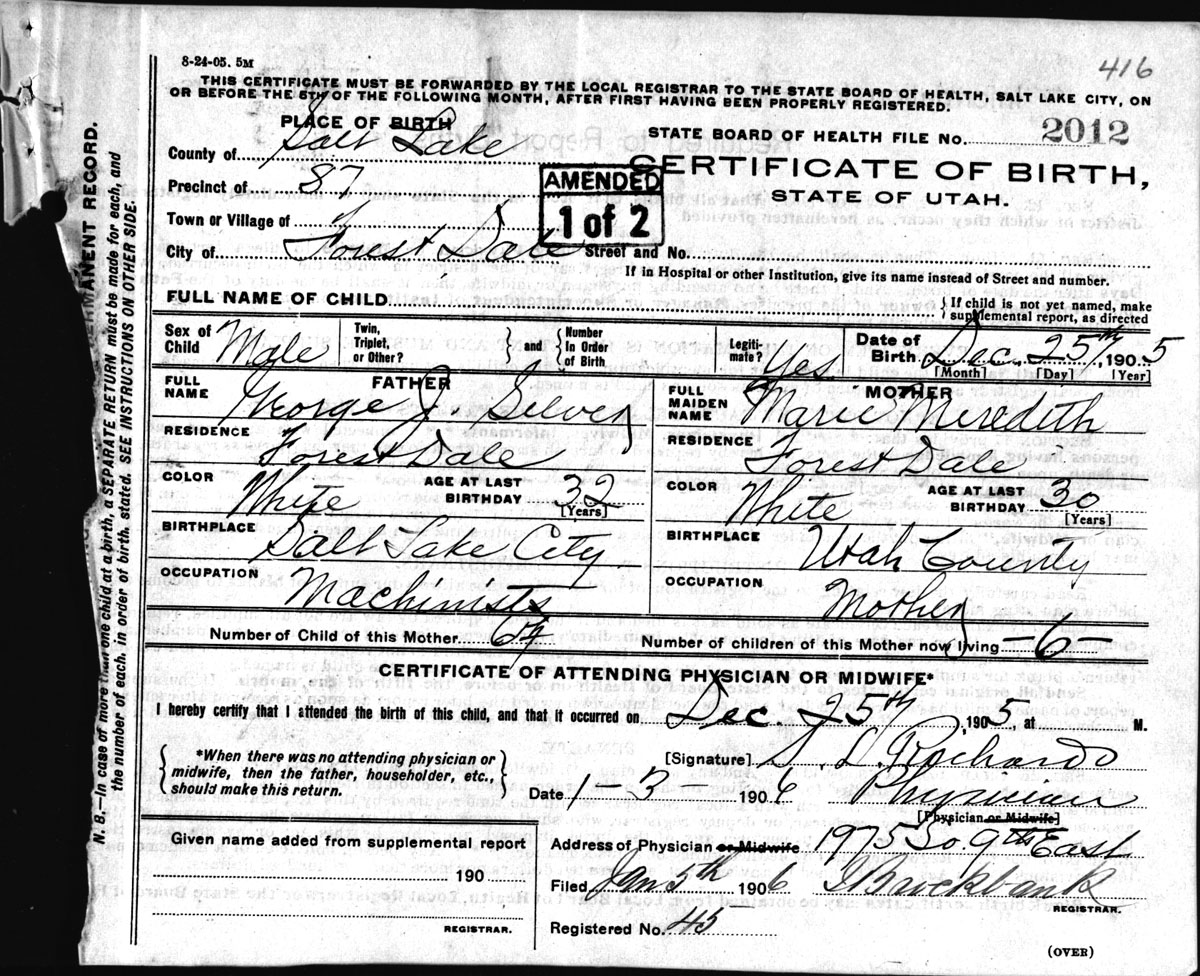 8-24-05. 5M
416
THIS CERTIFICATE MUST BE FORWARDED BY THE LOCAL REGISTRAR TO THE STATE BOARD OF HEALTH, SALT LAKE CITY, ON
OR BEFORE THE 5TH OF THE FOLLOWING MONTH, AFTER FIRST HAVING BEEN PROPERLY REGISTERED.
PLACE OF BIRTH
STATE BOARD OF HEALTH FILE No. 2012
County of Salt Lake
CERTIFICATE OF BIRTH,
Precinct of 87
AMENDED
STATE OF UTAH.
Town or Village of
1 of 2
City of Forest Dale Street and No.
If in Hospital or other Institution, give its name instead of Street and number.
FULL NAME OF CHILD
If child is not yet named, make
supplemental report, as directed
Sex of Child Male Twin, Triplet, or Other? and Number In Order of Birth Legiti-mate? Yes. Date of Birth Dec. 25th, 1905
[Month] [Day] [Year]
FATHER
MOTHER
FULL NAME George J. Silver
FULL MAIDEN NAME Marie Meredith
RESIDENCE Forest Dale
RESIDENCE Forest Dale
COLOR White AGE AT LAST BIRTHDAY 32
[Years]
COLOR White AGE AT LAST BIRTHDAY 30
[Years]
BIRTHPLACE Salt Lake City
BIRTHPLACE Utah County
OCCUPATION Machinists
OCCUPATION Mother
Number of Child of this Mother 6th
Number of children of this Mother now living -6-
CERTIFICATE OF ATTENDING PHYSICIAN OR MIDWIFE*
I hereby certify that I attended the birth of this child, and that it occurred on Dec. 25th, 1905, at M.
*When there was no attending physician or
midwife, then the father, householder, etc.,
should make this return.
[Signature] S. L. Richards
Date 1-3 1906 Physician
[Physician or Midwife]
Given name added from supplemental report
190
REGISTRAR.
Address of Physician or Midwife 1975 So. 9th East
Filed Jan 5th 1906 Brockbank
REGISTRAR.
Registered No. 45
(OVER)
N. B.—In case of more than one child at a birth, a SEPARATE RETURN must be made for each, and
the number of each, in order of birth, stated. SEE INSTRUCTIONS ON OTHER SIDE.